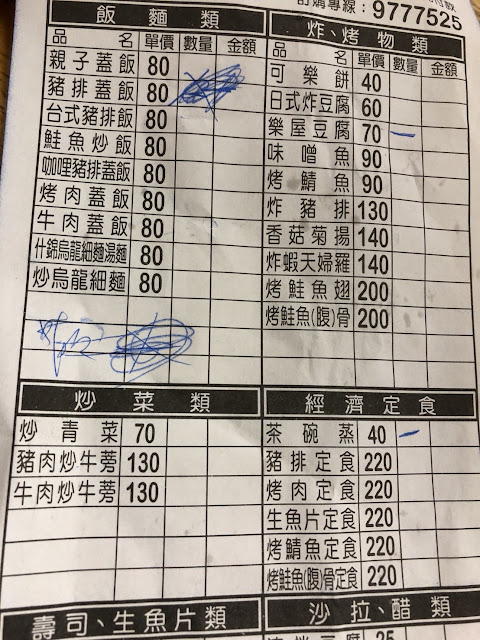 訂購專線：9777525
飯麵類
品名 單價 數量 金額
親子蓋飯 80
豬排蓋飯 80
台式豬排飯 80
鮭魚炒飯 80
咖哩豬排蓋飯 80
烤肉蓋飯 80
牛肉蓋飯 80
什錦烏龍細麵湯麵 80
炒烏龍細麵 80
炸、烤物類
品名 單價 數量 金額
可樂餅 40
日式炸豆腐 60
樂屋豆腐 70 一
味噌魚 90
烤鯖魚 90
炸豬排 130
香菇菊揚 140
炸蝦天婦羅 140
烤鮭魚翅 200
烤鮭魚(腹)骨 200
炒菜類
炒青菜 70
豬肉炒牛蒡 130
牛肉炒牛蒡 130
經濟定食
茶碗蒸 40 一
豬排定食 220
烤肉定食 220
生魚片定食 220
烤鯖魚定食 220
烤鮭魚(腹)骨定食 220
壽司、生魚片類
沙拉、醋類